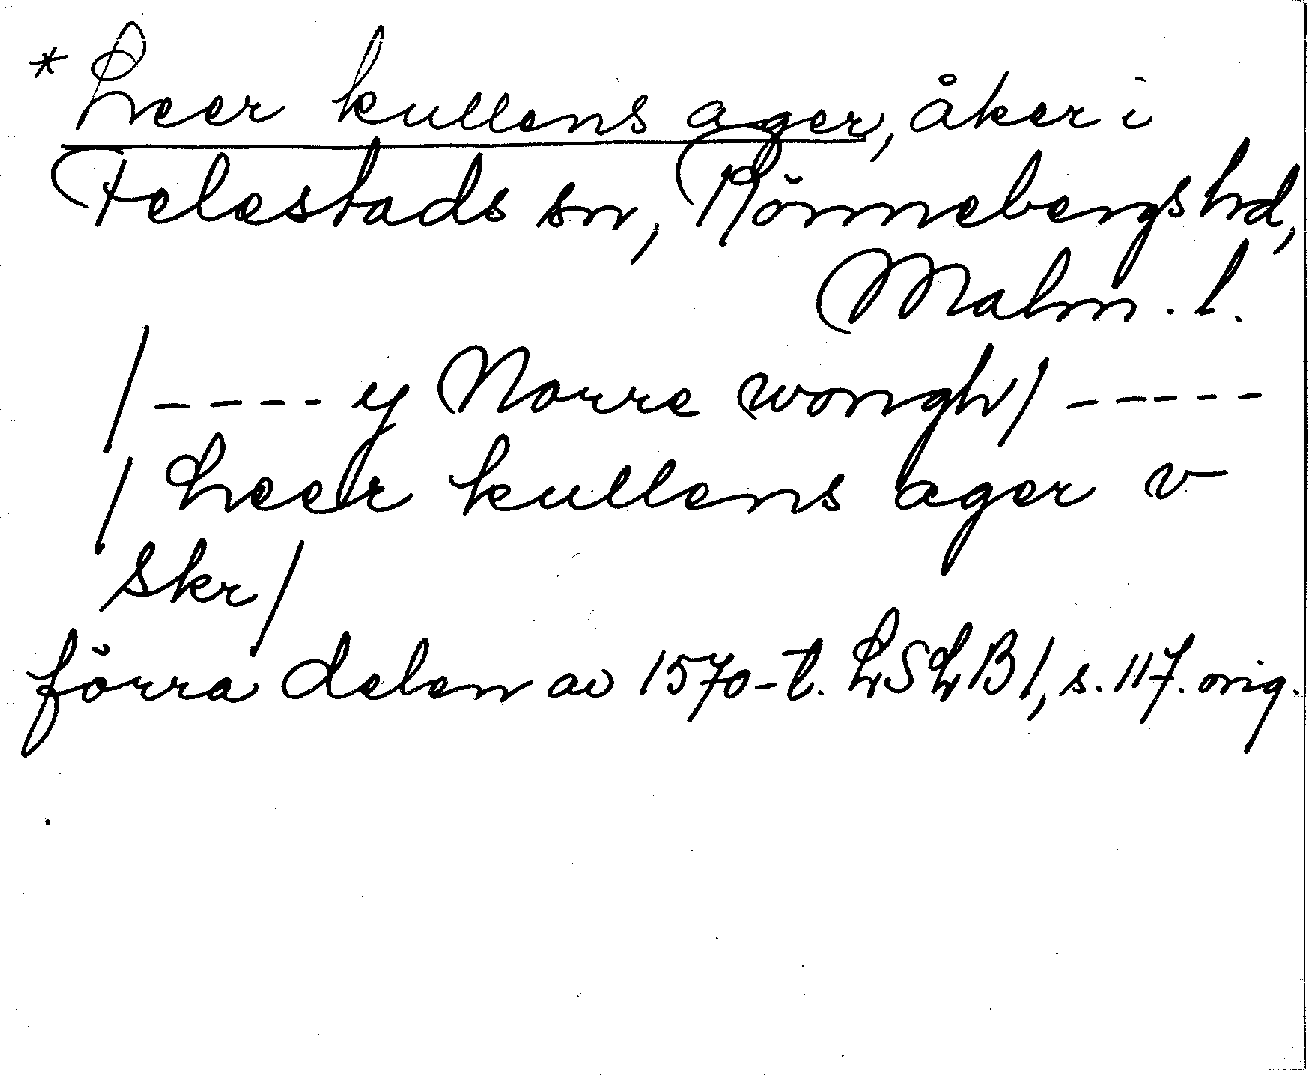 * Leer kullens ager, åker i
Felestads sn, Rönnebergs hd,
Malm. l.
/ - - - - y Norre wongh/ - - - - -
/ Leer kullens ager v
skr/
förra delen av 1570-t. LSLB1, s. 117. orig.